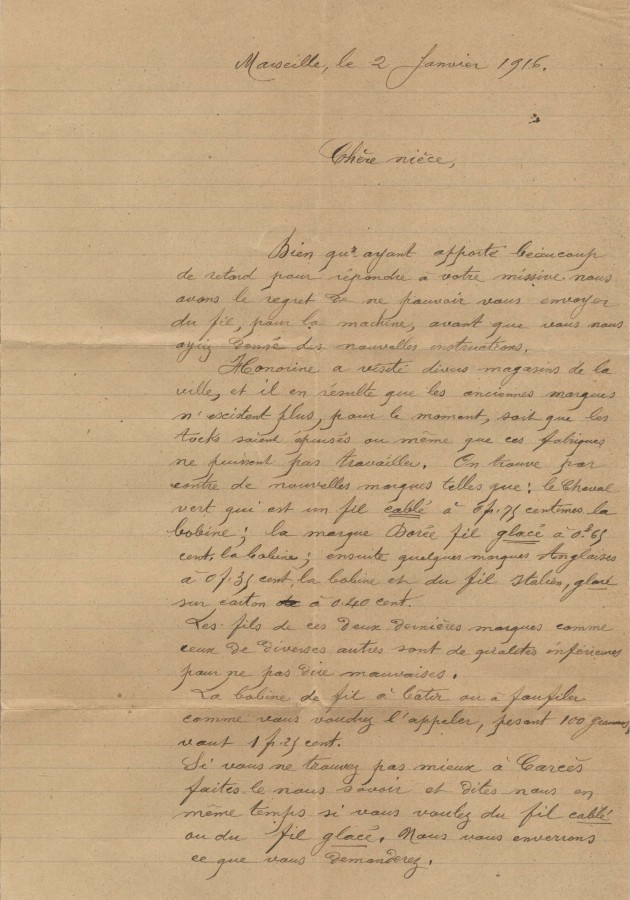 Marseille, le 2 Janvier 1916.
Chère nièce,
Bien qu'ayant apporté beaucoup
de retard pour répondre à votre missive nous
avons le regret de ne pouvoir vous envoyer
du fil, pour la machine, avant que vous nous
ayiez donné des nouvelles instructions.
Honorine a visité divers magasins de la
ville, et il en résulte que les anciennes marques
n'existent plus, pour le moment, soit que les
tocks soient épuisés ou même que ces fabriques
ne puissent pas travailler. On trouve par
contre de nouvelles marques telles que: le Cheval
vert qui est un fil cablé à 0f.75 centimes la
bobine; la marque Dorée fil glacé à 0.f65
cent. la bobine; ensuite quelques marques Anglaises
à 0f.35 cent, la bobine et du fil Italien, glacé
sur carton à 0.40 cent.
Les fils de ces deux dernières marques comme
ceux de diverses autres sont de qualités inférieures
pour ne pas dire mauvaises.
La bobine de fil à batir ou à faufiler
comme vous voudrez l'appeler, pesant 100 grammes
vaut 1f.25 cent.
Si vous ne trouvez pas mieux à Carcès
faites le nous savoir et dites nous en
même temps si vous voulez du fil cablé
ou du fil glacé. Nous vous enverrons
ce que vous demanderez.